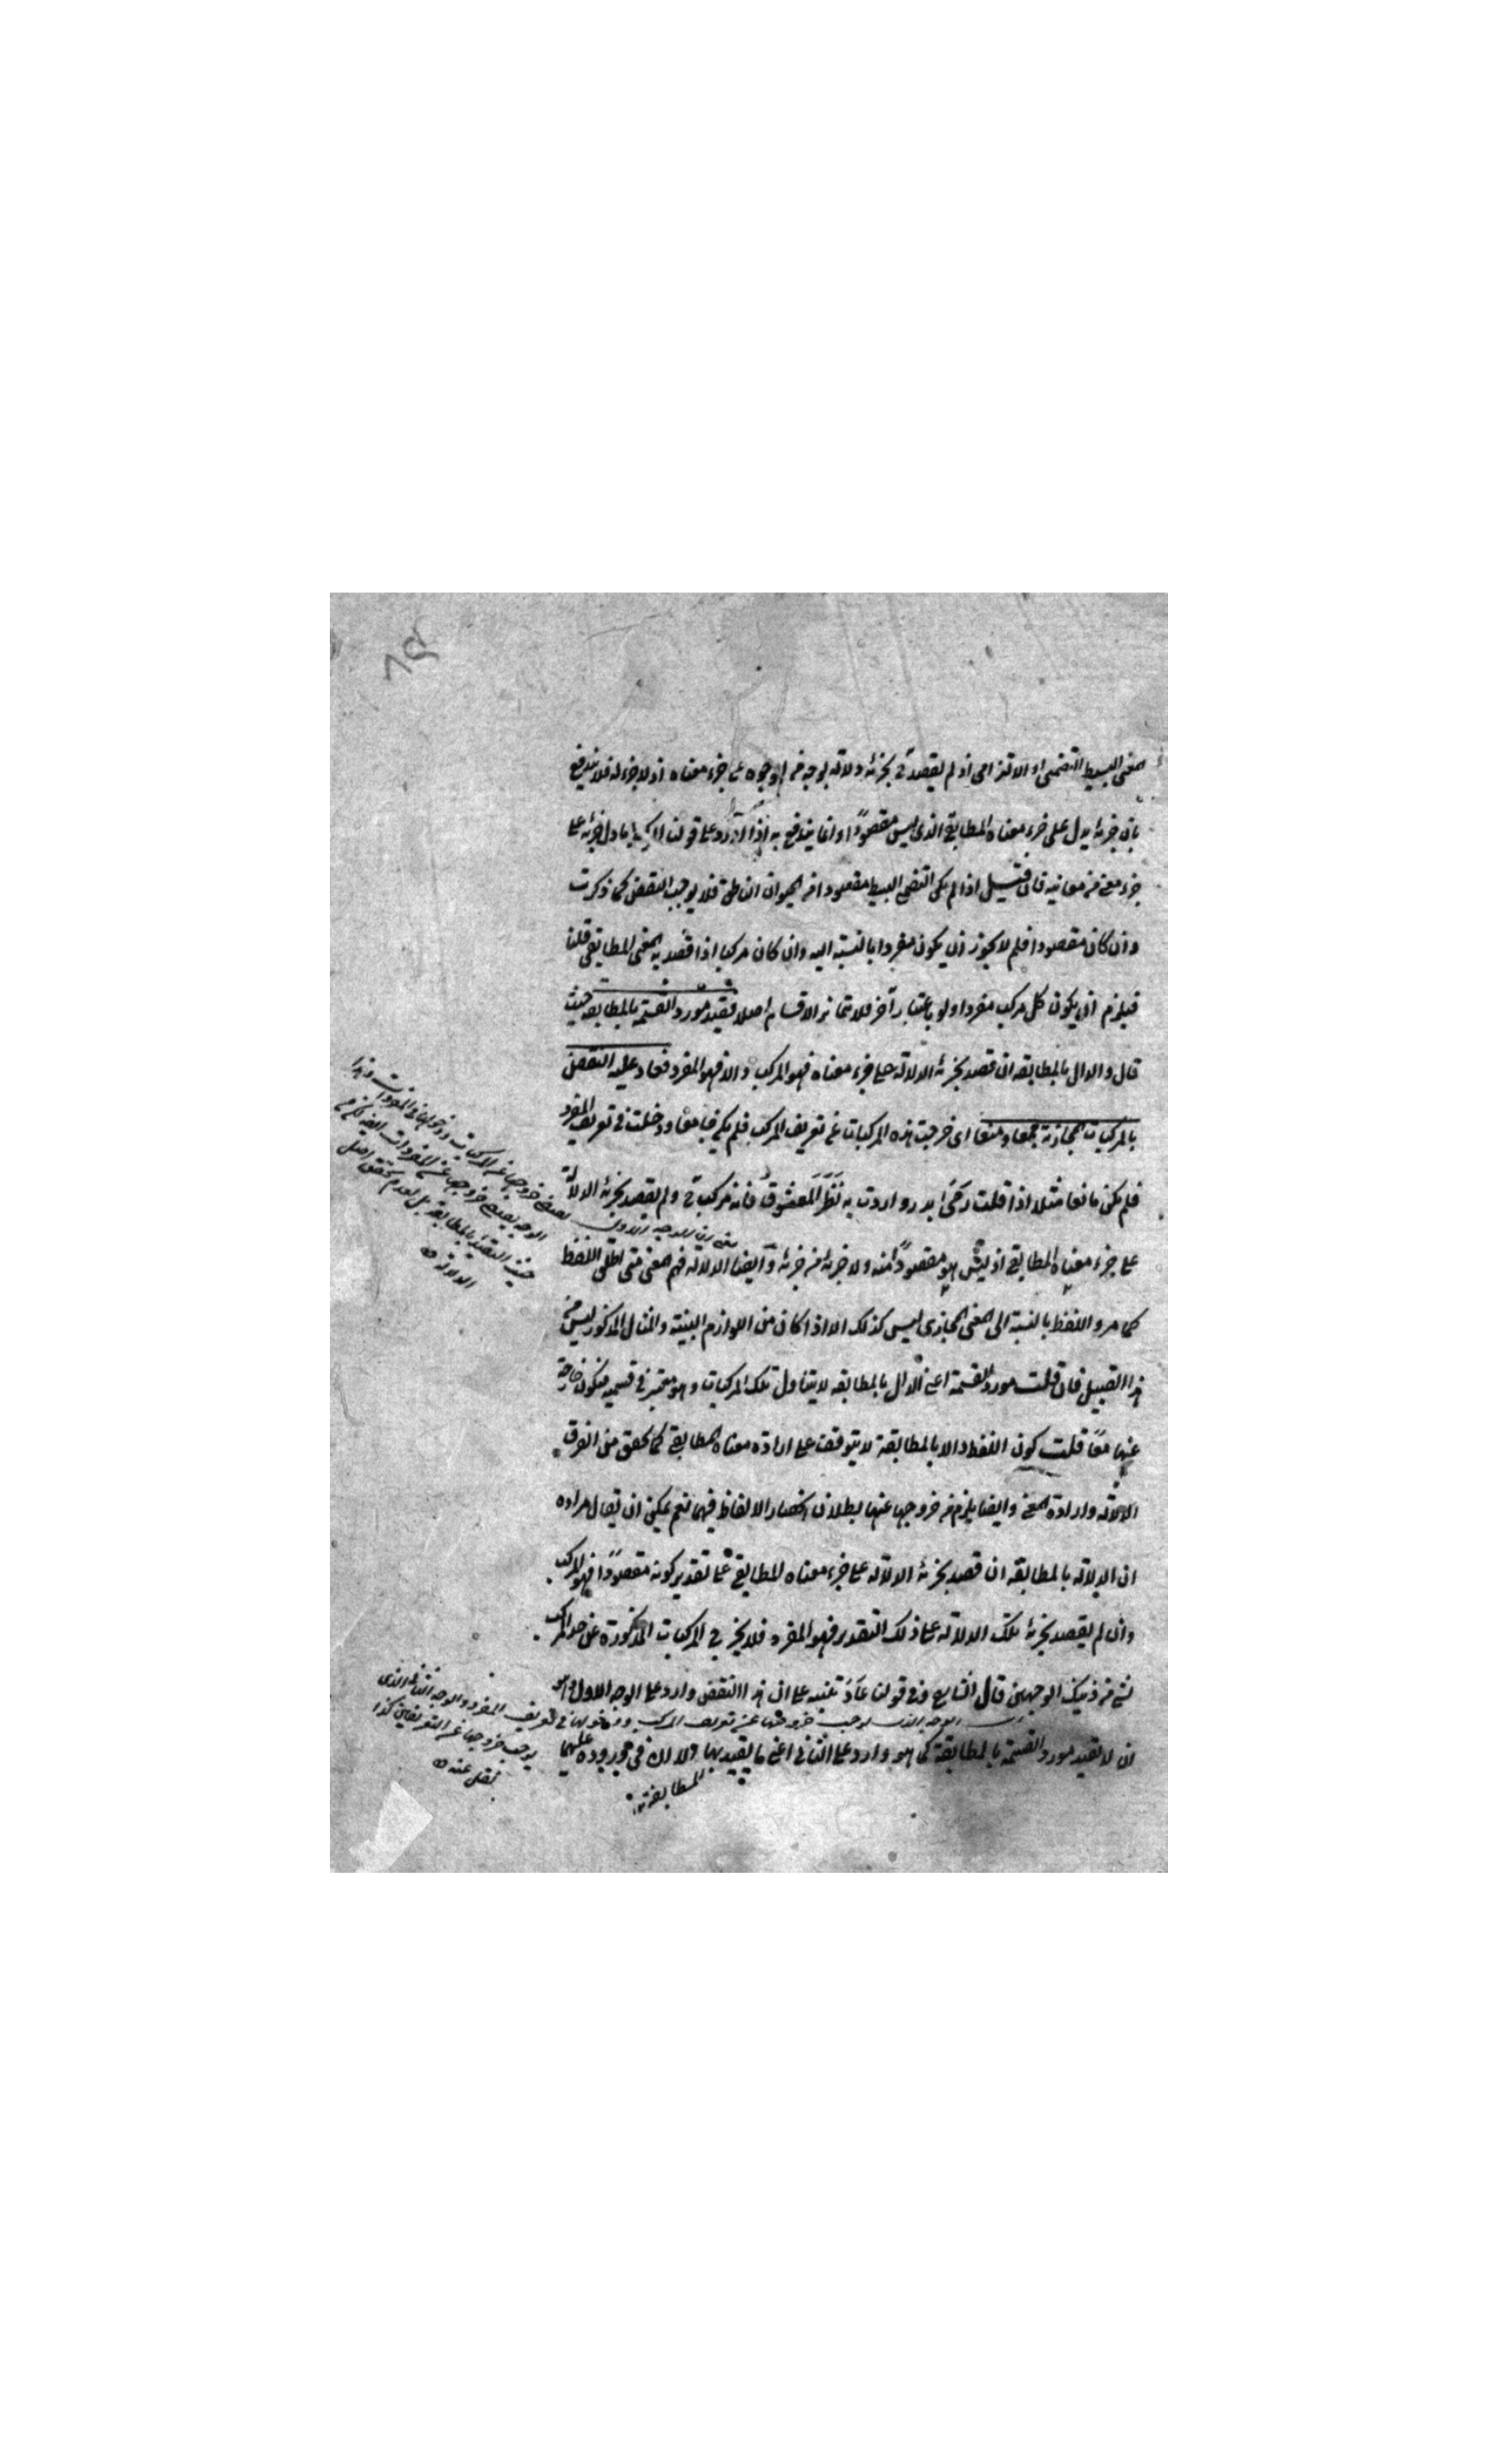 المعنى البسيط التضمني او الالتزامى اذ لم يقصد ح بجزئه دلالة بوجه من الوجوه على جزء معناه اذ لا جزء له فلا يندفع
بان جزئه يدل على جزء معناه المطابقى الذى ليس مقصودا وانما يندفع به اذا ورد على قولنا المركب ما دل جزئه على
جزء معنى من معانيه فان قيل اذا لم يكن التضمنى البسيط مقصودا من الحيوان الناطق فلا يوجب النقض كما ذكرت
وان كان مقصودا فلم لا يجوز ان يكون مفردا بالنسبة اليه وان كان مركبا اذا قصد به المعنى المطابقى قلنا
فيلزم ان يكون كل مركب مفردا ولو باعتبار آخر فلا تتمايز الاقسام اصلا فقيد مورد القسمة بالمطابقه حيث
قال والدال بالمطابقه ان قصد بجزئه الدلاله على جزء معناه فهو المركب والا فهو المفرد فعاد عليه النقض
بالمركبات المجازية جمعا ومنعا اى خرجت هذه المركبات عن تعريف المركب فلم يكن جامعا ودخلت فى تعريف المفرد
فلم يكن مانعا مثلا اذا قلت رمى بدر واردت به نظر المعشوق فانه مركب ح ولم يقصد بجزئه الدلالة
على جزء معناه المطابقى اذ ليس هو مقصودا منه ولا جزئه من جزئه وايضا الدلالة فهم المعنى متى اطلق اللفظ
كما مر واللفظ بالنسبة الى المعنى المجازى ليس كذلك الا اذا كان من اللوازم البينة والمثال المذكور ليس من
هذا القبيل فان قلت مورد القسمة اعنى الدال بالمطابقه لا يتناول تلك المركبات وهو معتبر فى قسميه فتكون خارجة
عنهما معا قلت كون اللفظ دالا بالمطابقة لا يتوقف على ارادة معناه المطابقى كما تحقق من الفرق
الدلالة وارادة المعنى وايضا يلزم من خروجها عنهما بطلان انحصار الالفاظ فيهما نعم يمكن ان يقال مراده
ان الدلالة بالمطابقه ان قصد بجزئه الدلالة على جزء معناه المطابقى على تقدير كونه مقصودا فهو المركب
وان لم يقصد بجزئه تلك الدلالة على ذلك التقدير فهو المفرد فلا يخرج المركبات المذكورة عن حد المركب
لشئ من ذينك الوجهين قال الشارح وفى قولنا عاد تنبيه على ان هذا النقض وارد على الوجه الاول وهو
ان لا يقيد مورد القسمة بالمطابقة كما هو وارد على الثانى اعنى ما يقيد بها الا ان فى وروده عليهما
يعنى ان الوجه الاول يقتضى خروجها عن المركبات ودخولها فى المفردات وهذا
الوجه يقتضى خروجها عن المفردات ايضا
حيث التقييد بالمطابقه بل لعدم تحقق اصل
الدلالة
الوجه الاول يوجب خروجها عن تعريف المركب ودخولها فى تعريف المفرد والوجه الثانى الذى
يوجب خروجها عن التعريفين كذا
نقل عنه
المطابقة